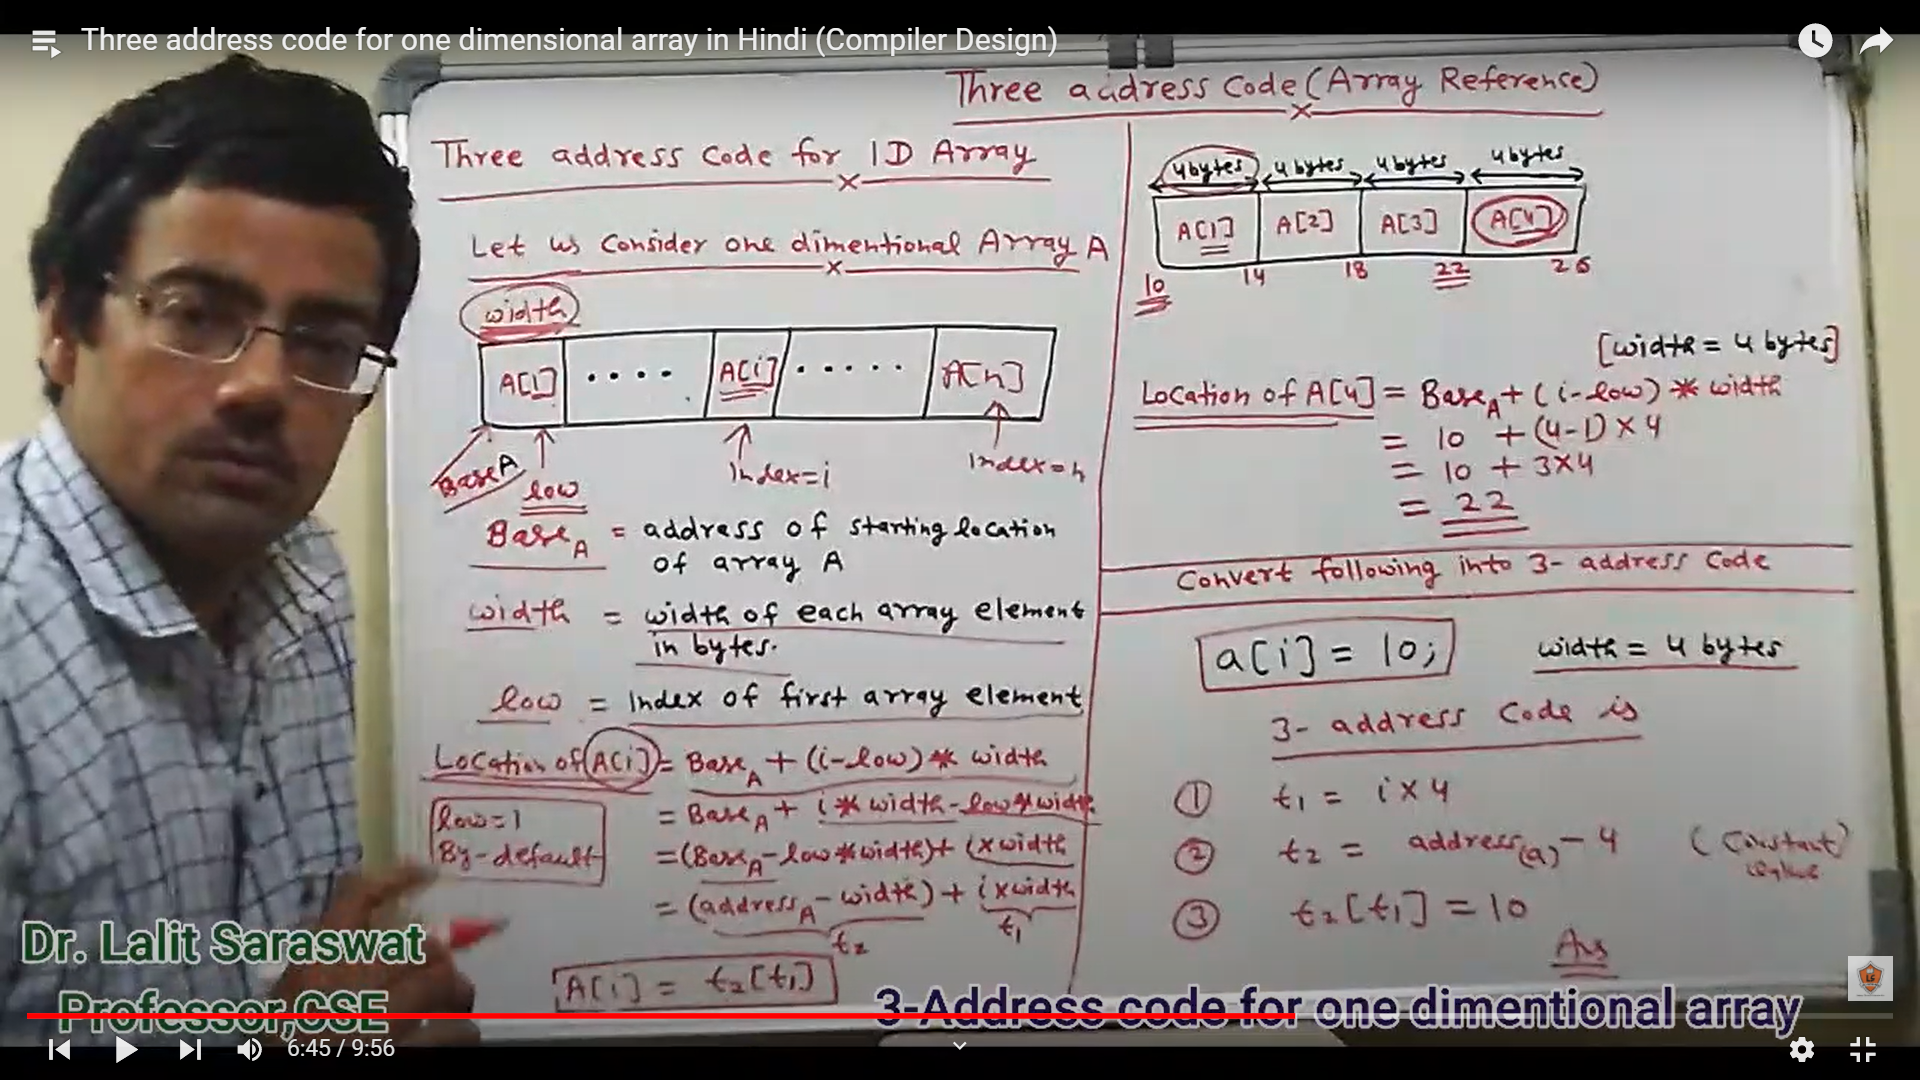 Three address code for one dimensional array in Hindi (Compiler Design)
Three address Code (Array Reference)
Three address Code for 1D Array
Let us Consider one dimentional Array A
width
A[1] .... A[i] ..... A[n]
BaseA
low
Index=i
Index=n
BaseA = address of starting location
of array A
width = width of each array element
in bytes.
low = Index of first array element
Location of A[i] = BaseA + (i-low) * width
low=1
By-default
= BaseA + i * width - low * width
= (BaseA - low * width) + i x width
= (addressA - width) + i x width
t2
t1
A[i] = t2[t1]
4 bytes 4 bytes 4 bytes 4 bytes
A[1] A[2] A[3] A[4]
10 14 18 22 26
[width = 4 bytes]
Location of A[4] = BaseA + (i-low) * width
= 10 + (4-1) x 4
= 10 + 3x4
= 22
Convert following into 3- address Code
a[i] = 10; width = 4 bytes
3- address Code is
① t1 = i x 4
② t2 = address(a) - 4 (Constant)
③ t2[t1] = 10
Ans
Dr. Lalit Saraswat
Professor,CSE
3-Address code for one dimentional array
6:45 / 9:56